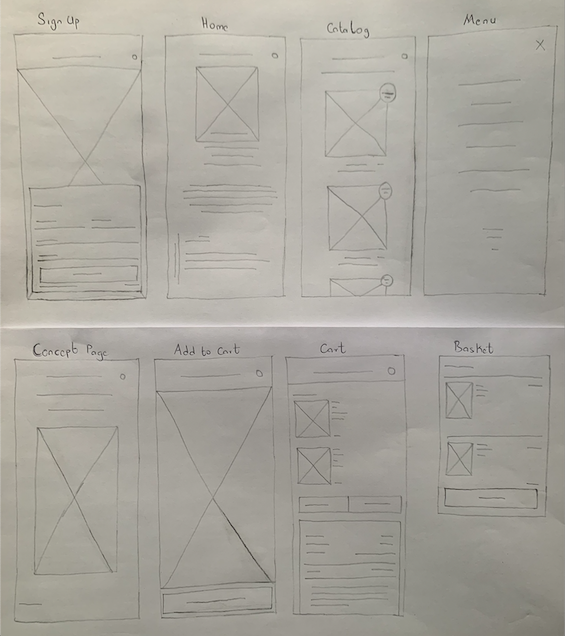 Sign Up
Home
Catalog
Menu
X
Concept Page
Add to Cart
Cart
Basket